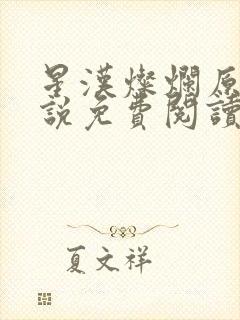 星漢燦爛原
說免費閱讀
夏文祥